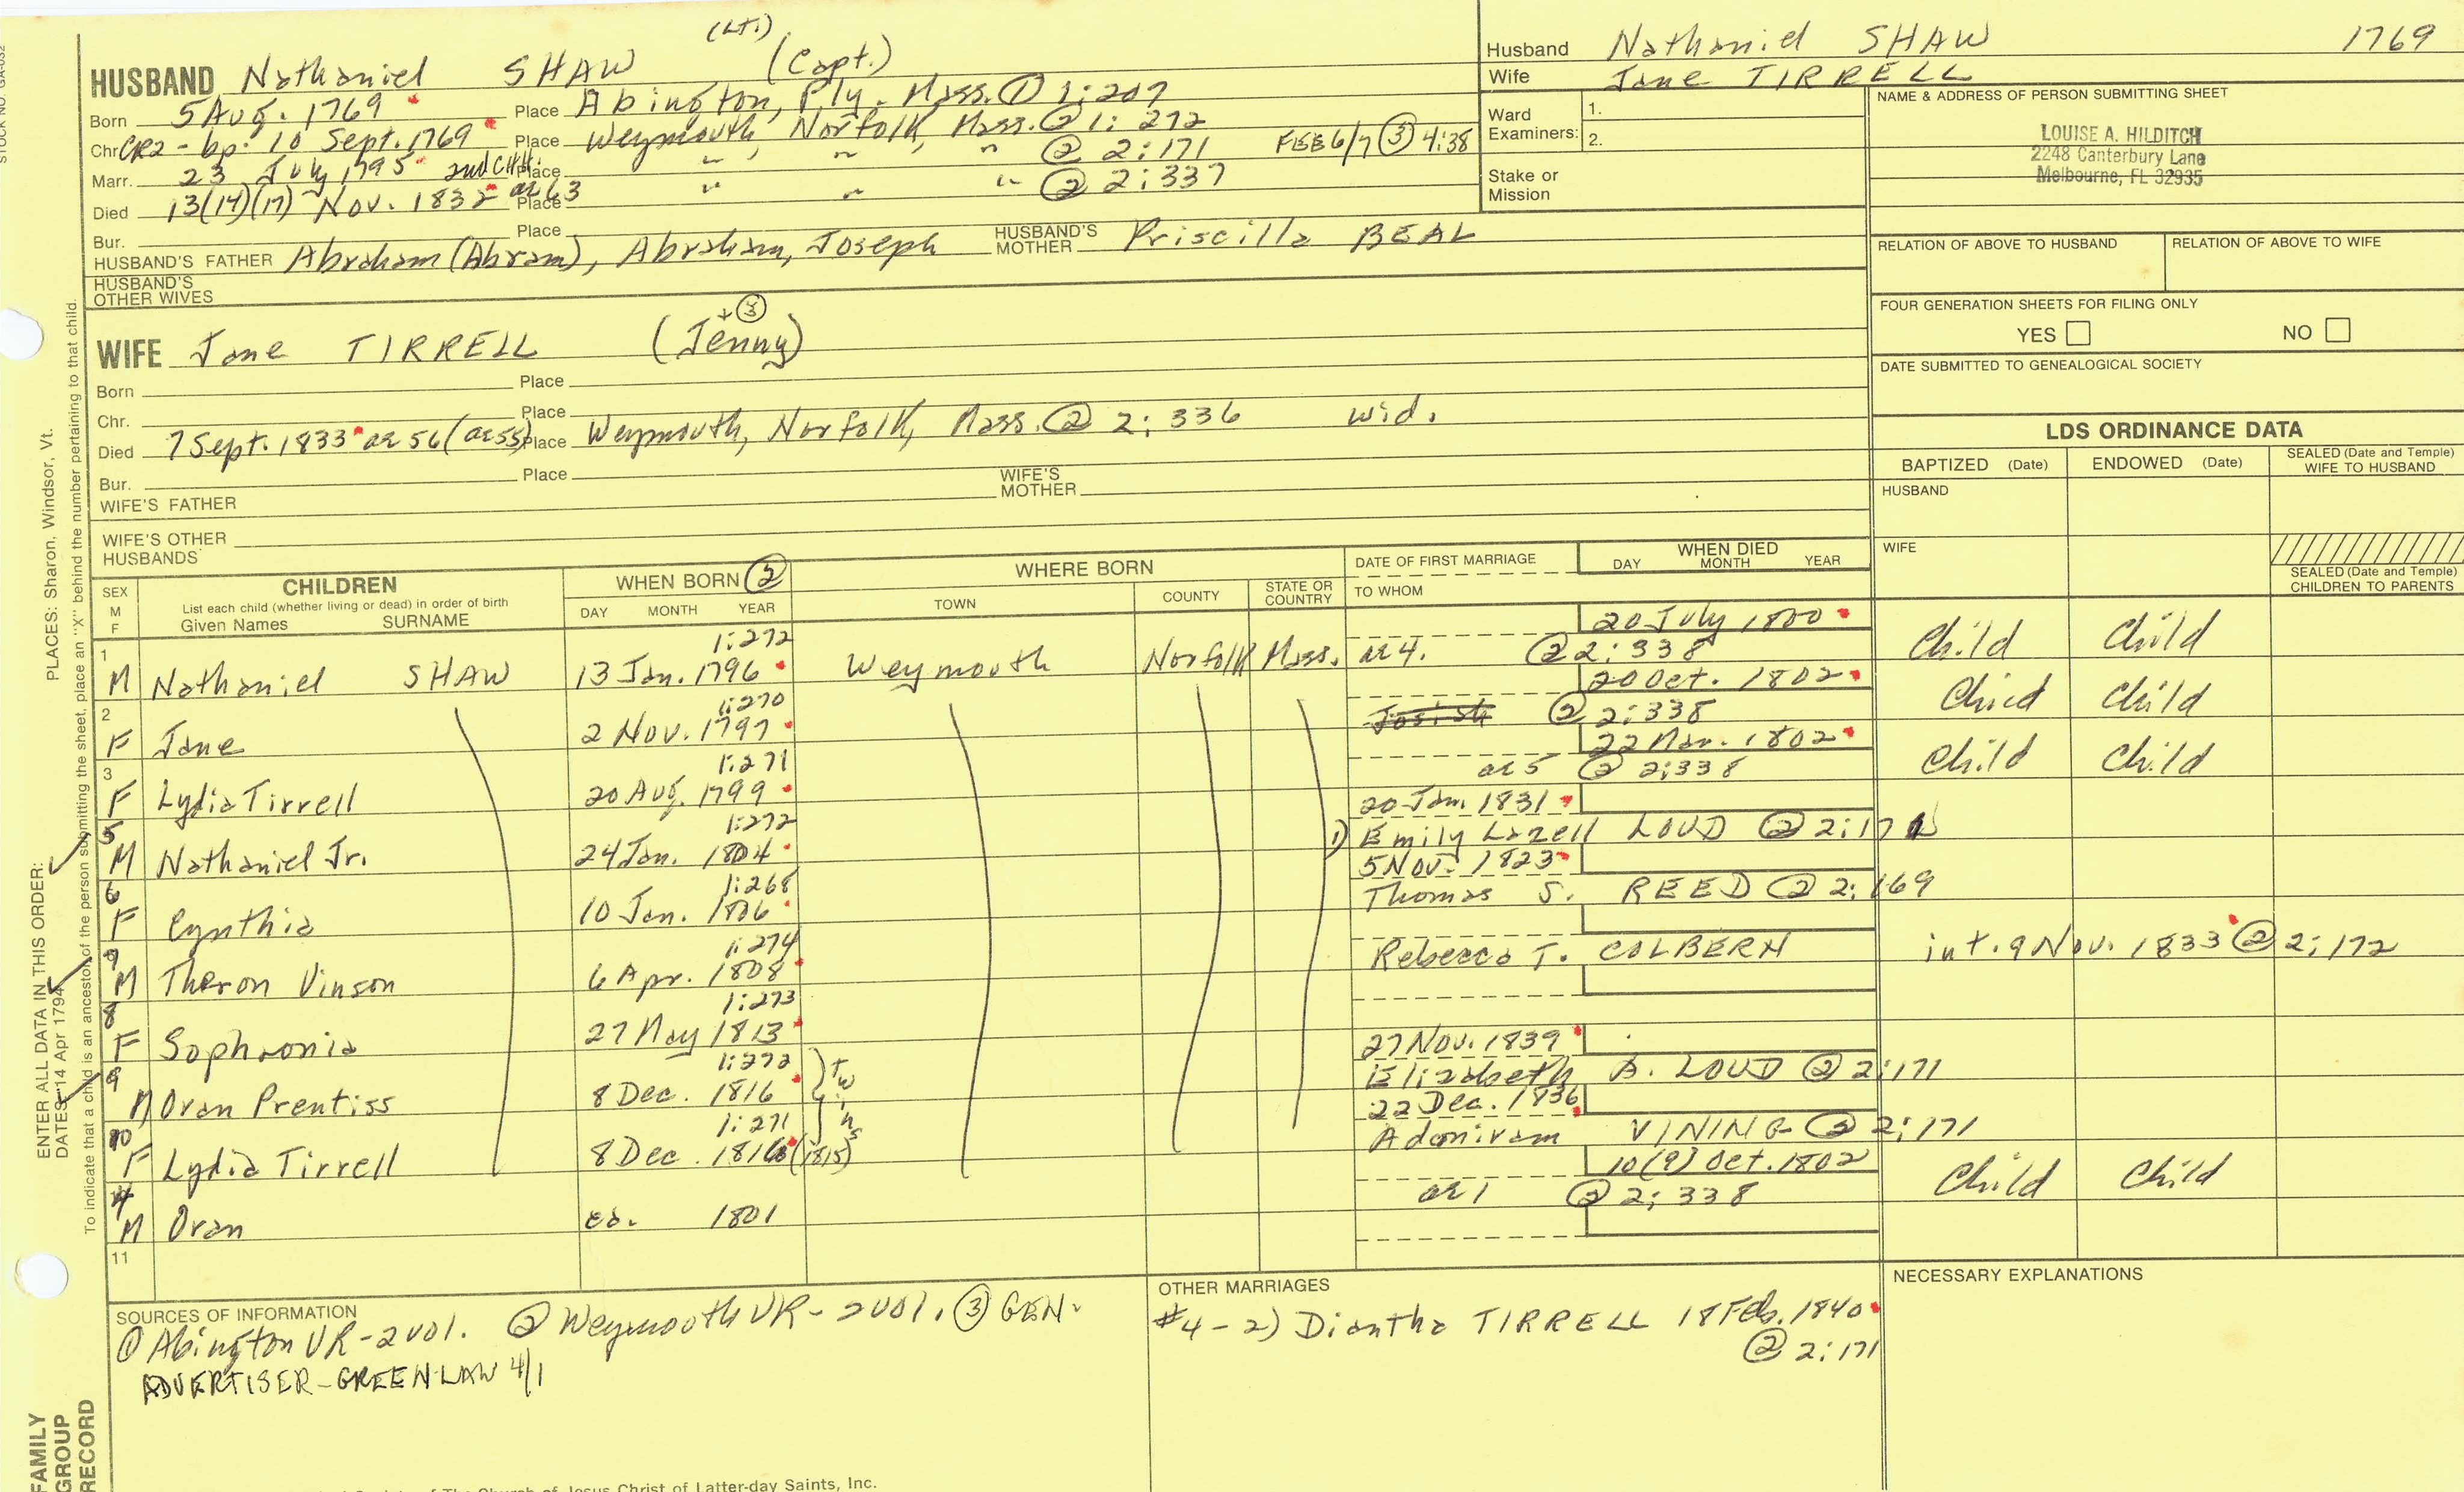 (Lt.)
HUSBAND Nathaniel SHAW (Capt.)
Born 5 Aug. 1769 Place Abington, Ply. Mass. ① 1:207
Chr. CR2 - bp. 10 Sept. 1769 Place Weymouth, Norfolk, Mass. ② 1:272
Marr. 23 July 1795 2nd CHH. Place " " " ② 2:171 FEB 6/7 ③ 4:38
Died 13(14)(17) Nov. 1832 ae 63 Place " " " ② 2:337
Bur. Place
HUSBAND'S FATHER Abraham (Abram), Abraham, Joseph HUSBAND'S MOTHER Priscilla BEAL
HUSBAND'S OTHER WIVES
③
WIFE Jane TIRRELL (Jenny)
Born Place
Chr. Place
Died 7 Sept. 1833 ae 56 (ae 55) Place Weymouth, Norfolk, Mass. ② 2:336 wid.
Bur. Place
WIFE'S FATHER WIFE'S MOTHER
WIFE'S OTHER HUSBANDS
Husband Nathaniel SHAW 1769
Wife Jane TIRRELL
Ward Examiners: 1.
2.
Stake or Mission
NAME & ADDRESS OF PERSON SUBMITTING SHEET
LOUISE A. HILDITCH
2248 Canterbury Lane
Melbourne, FL 32935
RELATION OF ABOVE TO HUSBAND RELATION OF ABOVE TO WIFE
FOUR GENERATION SHEETS FOR FILING ONLY
YES NO
DATE SUBMITTED TO GENEALOGICAL SOCIETY
LDS ORDINANCE DATA
BAPTIZED (Date) ENDOWED (Date) SEALED (Date and Temple) WIFE TO HUSBAND
HUSBAND
WIFE
SEALED (Date and Temple) CHILDREN TO PARENTS
SEX M F
CHILDREN
List each child (whether living or dead) in order of birth
Given Names SURNAME
WHEN BORN ②
DAY MONTH YEAR
WHERE BORN
TOWN COUNTY STATE OR COUNTRY
DATE OF FIRST MARRIAGE
TO WHOM
WHEN DIED
DAY MONTH YEAR
1:272 20 July 1800
1 M Nathaniel SHAW 13 Jan. 1796 Weymouth Norfolk Mass. ae 4. ② 2:338 Child Child
1:270 20 Oct. 1802
2 F Jane 2 Nov. 1797 Josiah ② 2:338 Child Child
1:271 22 Mar. 1802
3 F Lydia Tirrell 20 Aug. 1799 ae 5 ② 2:338 Child Child
1:272 20 Jan. 1831
5 M Nathaniel Jr. 24 Jan. 1804 1) Emily Lazell LOUD ② 2:171
1:268 5 Nov. 1823
6 F Cynthia 10 Jan. 1806 Thomas S. REED ② 2:169
1:274
M Theron Vinson 6 Apr. 1808 Rebecca T. COLBERN int. 9 Nov. 1833 ② 2:172
1:273
8 F Sophronia 27 May 1813
1:272 27 Nov. 1839
9 M Oran Prentiss 8 Dec. 1816 twins Elizabeth A. LOUD ② 2:171
1:271 22 Dec. 1836
10 F Lydia Tirrell 8 Dec. 1816 (1815) Adoniram VINING ② 2:171
10(9) Oct. 1802
4 M Oran ca. 1801 ae 1 ② 2:338 Child Child
11
SOURCES OF INFORMATION
① Abington VR - 2 vol. ② Weymouth VR - 2 vol. ③ GEN.
ADVERTISER - GREENLAW 4/1
OTHER MARRIAGES
#4 - 2) Diantha TIRRELL 18 Feb. 1840
② 2:171
NECESSARY EXPLANATIONS
ENTER ALL DATA IN THIS ORDER:
DATES: 14 Apr 1794
PLACES: Sharon, Windsor, Vt.
To indicate that a child is an ancestor of the person submitting the sheet, place an "X" behind the number pertaining to that child.
FAMILY GROUP RECORD
The Church of Jesus Christ of Latter-day Saints, Inc.